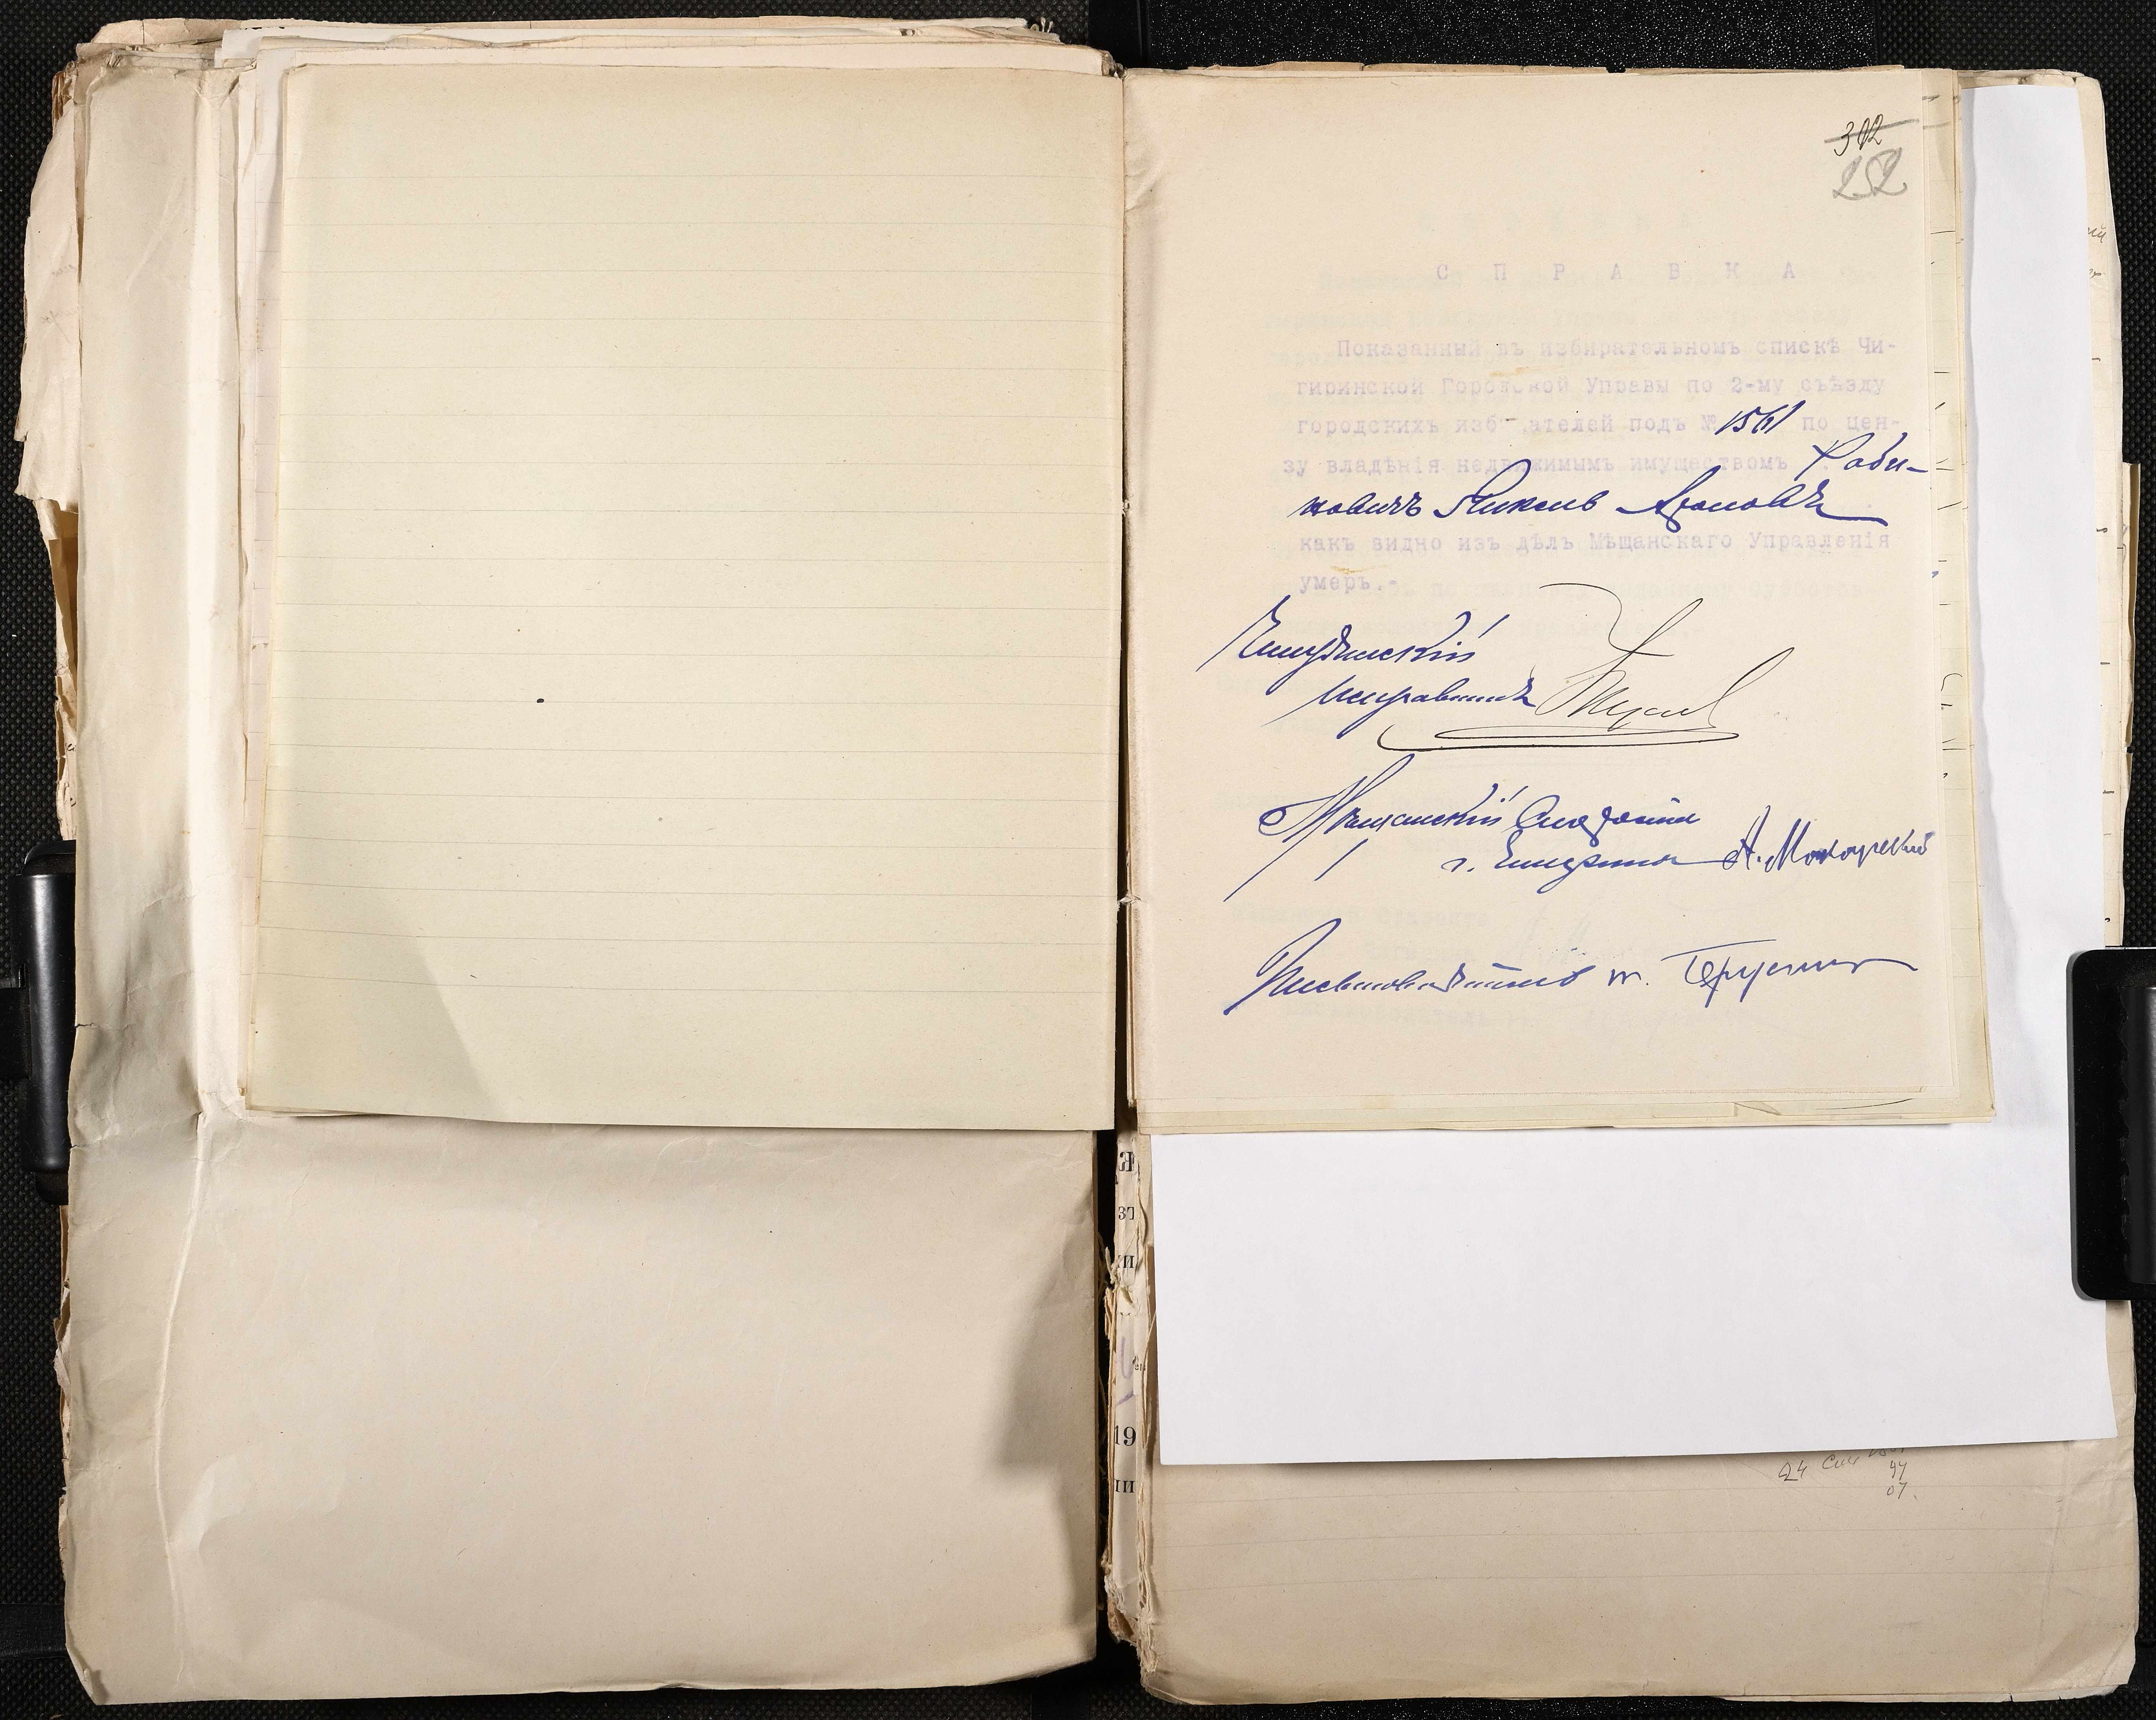 302
252
С П Р А В К А
Показанный въ избирательномъ спискѣ Чи-
гиринской Городской Управы по 2-му съѣзду
городскихъ избирателей подъ № 1561 по цен-
зу владѣнія недвижимымъ имуществомъ Раби-
новичъ Янкель Ароновъ
какъ видно изъ дѣлъ Мѣщанскаго Управленія
умеръ.-
Чигиринскій
Исправникъ
Мѣщанскій Староста
г. Чигирина А. Мокрицкій
Письмоводитель
19
24
97
07.